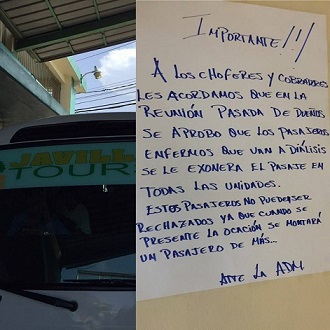 JAVILL
TOUR
IMPORTANTE!!!
A LOS CHOFERES Y COBRADORES
LES ACORDAMOS QUE EN LA
REUNIÓN PASADA DE DUEÑOS
SE APROBO QUE LOS PASAJEROS
ENFERMOS QUE VAN A DIÁLISIS
SE LE EXONERA EL PASAJE EN
TODAS LAS UNIDADES.
ESTOS PASAJEROS NO PUEDEN SER
RECHAZADOS YA QUE CUANDO SE
PRESENTE LA OCACIÓN SE MONTARÁ
UN PASAJERO DE MÁS...
ATTE LA ADM